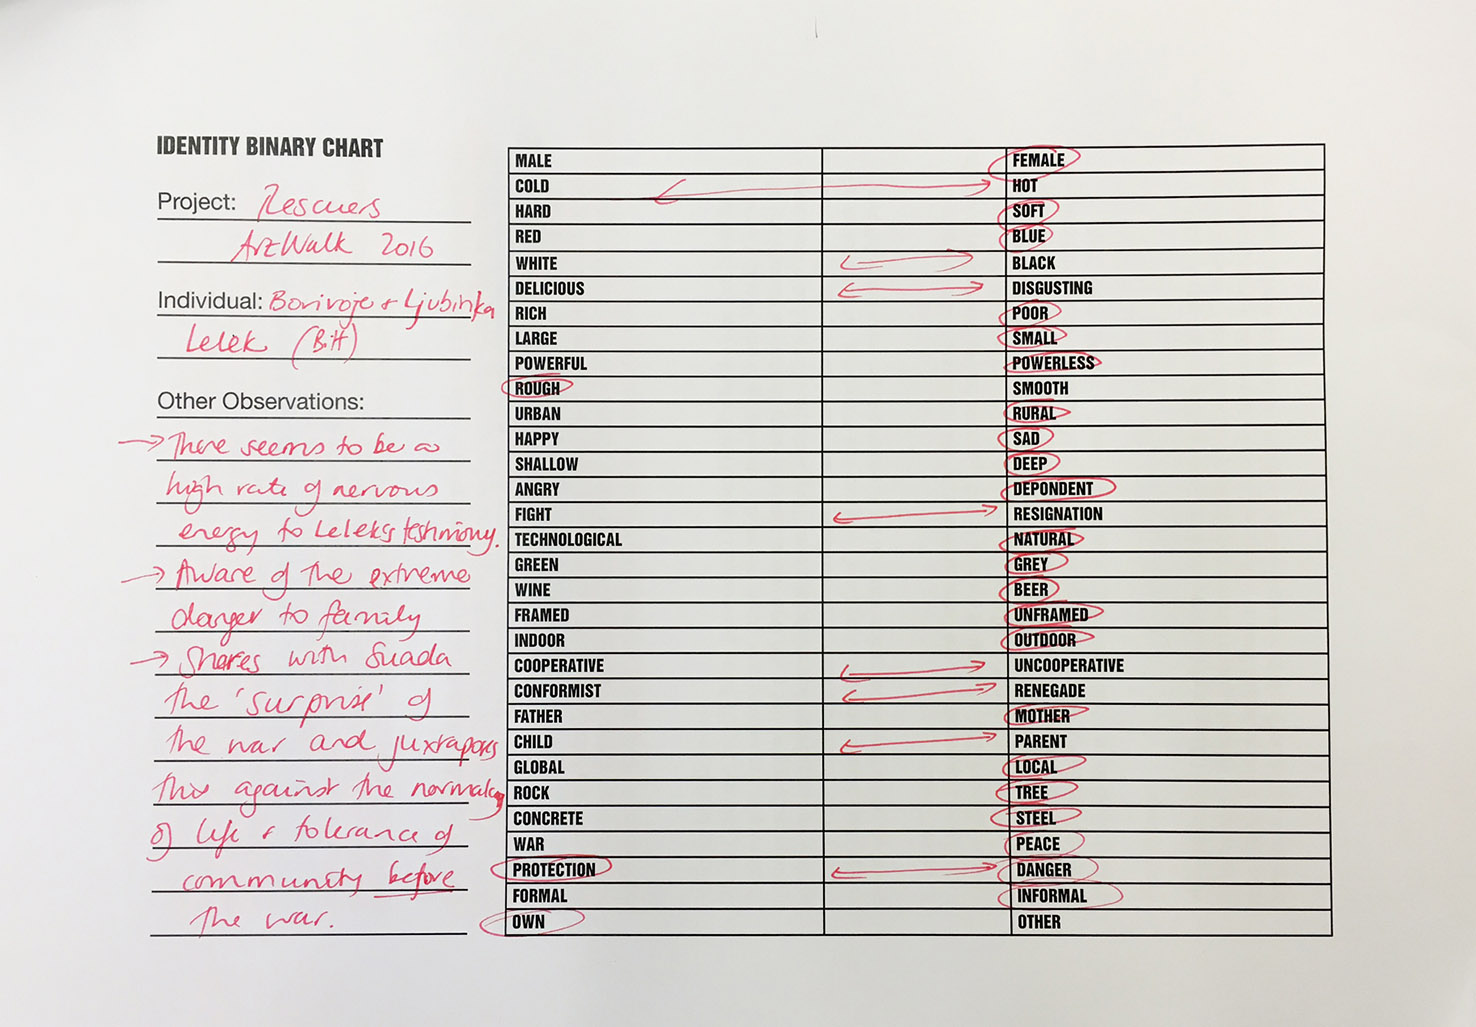 IDENTITY BINARY CHART
Project: Rescuers
ArtWalk 2016
Individual: Borivoje + Ljubinka
Lelek (BiH)
Other Observations:
→ There seems to be a
high rate of nervous
energy to Lelek's testimony.
→ Aware of the extreme
danger to family
→ Shares with Suada
the 'surprise' of
the war and juxtaposes
this against the normalcy
of life + tolerance of
community before
the war.
MALE FEMALE
COLD HOT
HARD SOFT
RED BLUE
WHITE BLACK
DELICIOUS DISGUSTING
RICH POOR
LARGE SMALL
POWERFUL POWERLESS
ROUGH SMOOTH
URBAN RURAL
HAPPY SAD
SHALLOW DEEP
ANGRY DEPONDENT
FIGHT RESIGNATION
TECHNOLOGICAL NATURAL
GREEN GREY
WINE BEER
FRAMED UNFRAMED
INDOOR OUTDOOR
COOPERATIVE UNCOOPERATIVE
CONFORMIST RENEGADE
FATHER MOTHER
CHILD PARENT
GLOBAL LOCAL
ROCK TREE
CONCRETE STEEL
WAR PEACE
PROTECTION DANGER
FORMAL INFORMAL
OWN OTHER